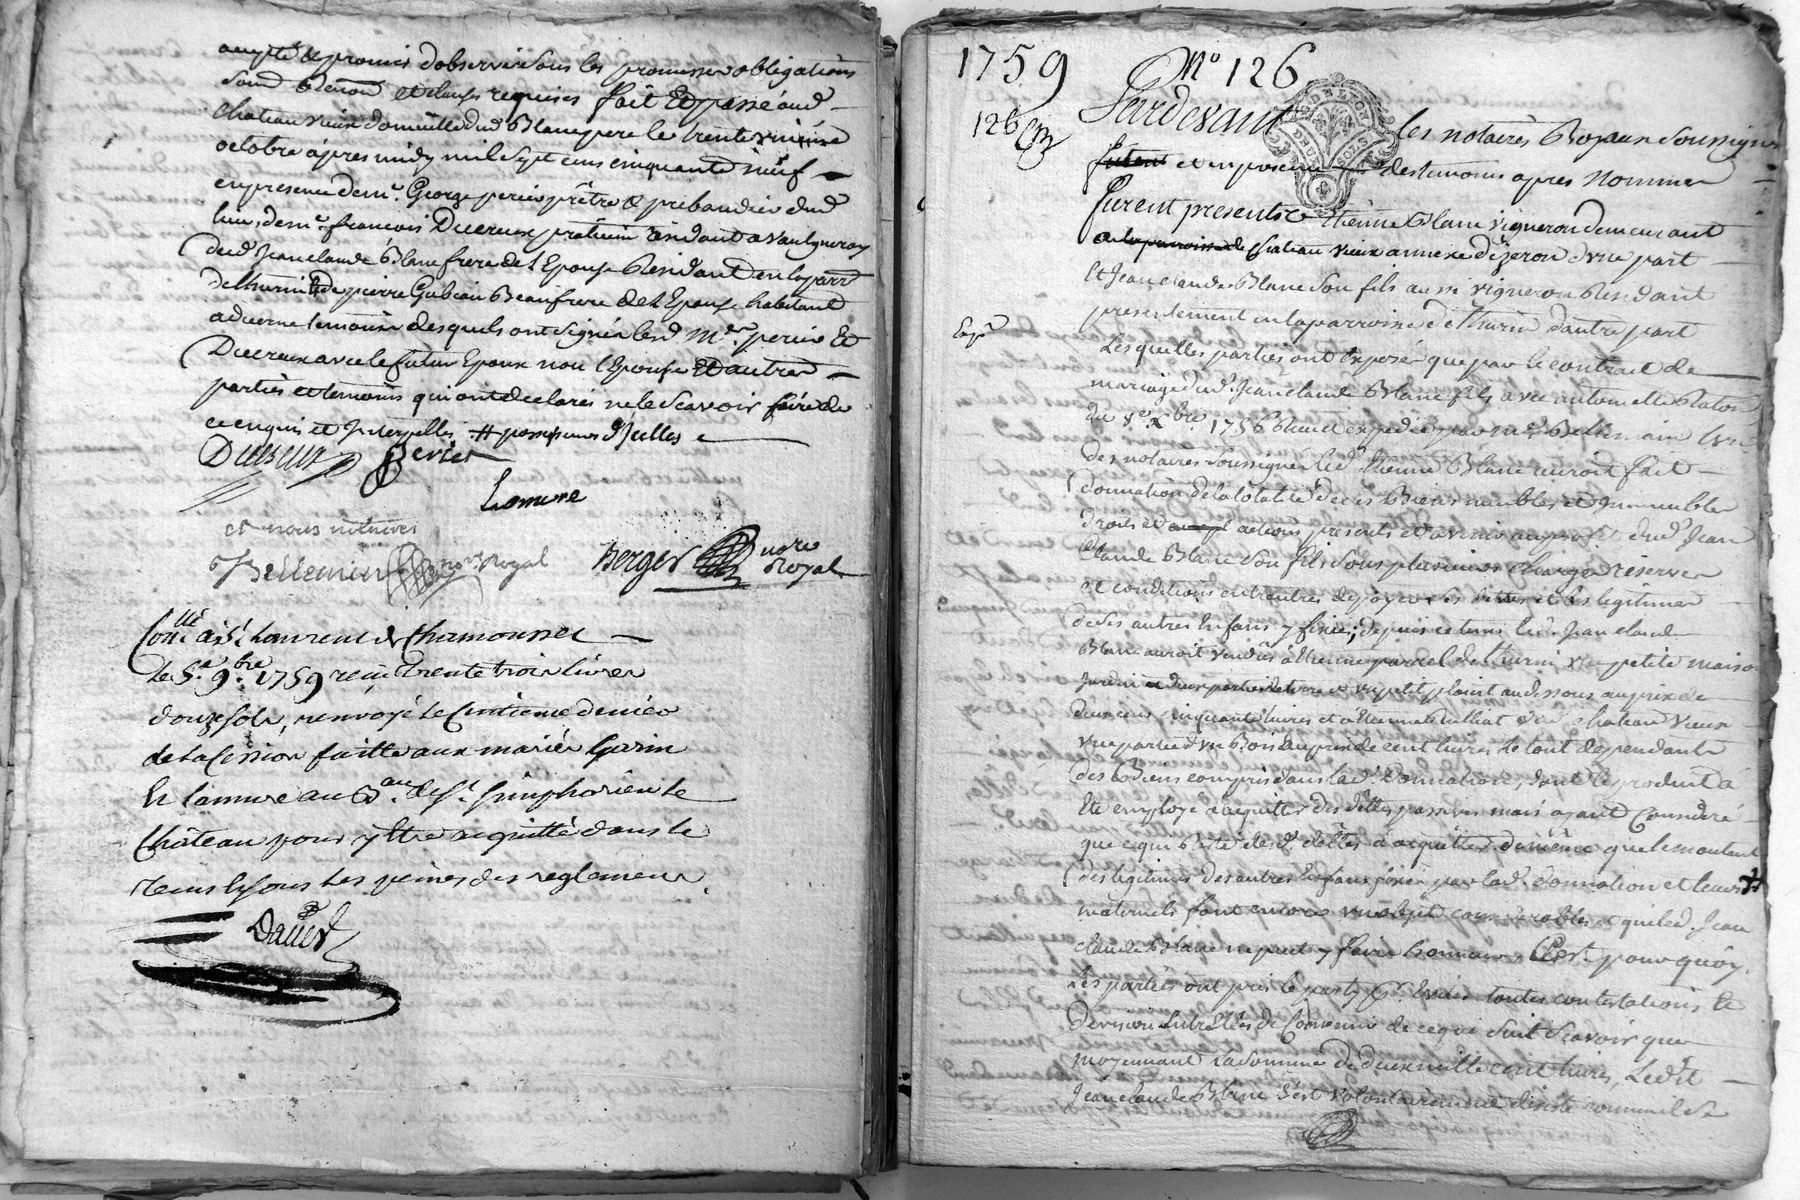 accepté & promis d'observer sous les promesses obligations
soud. Renon. et clauses requises fait Et passé aud.
chateauvieux domicille dud. Blanc pere le trente uniéme
octobre après midy mil sept cens cinquante neuf
en presence de mr. George perier prêtre & prebandier dud.
lieu, de mr. françois Ducreux praticien résidant a Vaulgneray
dud. Jean claude Blanc frere de l'Epouse Résidant en la parr.
de thurin & de pierre Gubian Beaufrere de l'Epouse habitant
a duerne temoins desquels ont signé lesd. Mrs. perier Et
Ducreux avec le futur Epoux non l'Epouse Et autres
parties et temoins qui ont declarés ne le scavoir faire de
ce enquis et Interpellés
Ducreux Perier
Lamure
et nous notaires
Bellemin nore. Royal Berger nore
Royal
Conllé à St. Laurent de Chamousset
Le 5e. 9bre. 1759 reçu trente trois livres
douze sols, renvoyé le Centieme denier
de la Cession faitte aux mariés Garin
Et lamure au Bau. de St. simphorien le
Château pour y être acquitté dans le
tems Et sous les peines des reglemens.
Daniel
1759 No 126
126 Pardevant
GEN DE LYON
DEUX SOLS
les notaires Royaux soussignés
et en presence des temoins apres Nommés
furent presents Etienne Blanc vigneron demeurant
a chateau vieux annexe d'izeron d'une part
Et Jean claude Blanc son fils aussi vigneron Résidant
presentement en la parroisse de thurin d'autre part
Expé
Lesquelles parties ont exposé que par le contract de
mariage dud. Jean claude Blanc fils avec antoinette Raton
du 8e. Xbre 1756 Reçu et expedié par me. Bellemain l'un
des notaires soussignés led. Etienne Blanc auroit fait
donnation de la totalité de ces Biens meubles et Immeubles
droits et actions presents et avenir au profit dud. Jean
Claude Blanc son fils sous plusieurs charges réserves
et conditions entr'autres de payer ses dettes et les legitimes
de ses autres Enfans y fixées; depuis ce tems led. Jean claude
Blanc auroit vendus à Etienne parael de thurin une petite maison
Jardin deux parties de terre et un petit plaint au dessous au prix de
deux cens cinquante livres et à Etienne thulliat dud. chateau vieux
une partie d'un Bois au prix de cent livres Le tout dependants
des Biens compris dans lad. donnation, dont le produit a
Eté employé a acquitter des dettes passives mais ayant Consideré
que ce qui reste desd. dettes à acquitter de même que le montant
des legitimes des autres Enfans fixées par lad. donnation et leurs
maternels font encore un objet considerable et que led. Jean
claude Blanc ne peut y faire honneur C'est pourquoy
Les parties ont pris le party pr. Eviter toutes contestations et
division entr'Elles de Convenir de ce qui suit Scavoir que
moyennant la somme de deux mille cent livres, Ledit
Jean claude Blanc s'est volontairement désisté comme il se